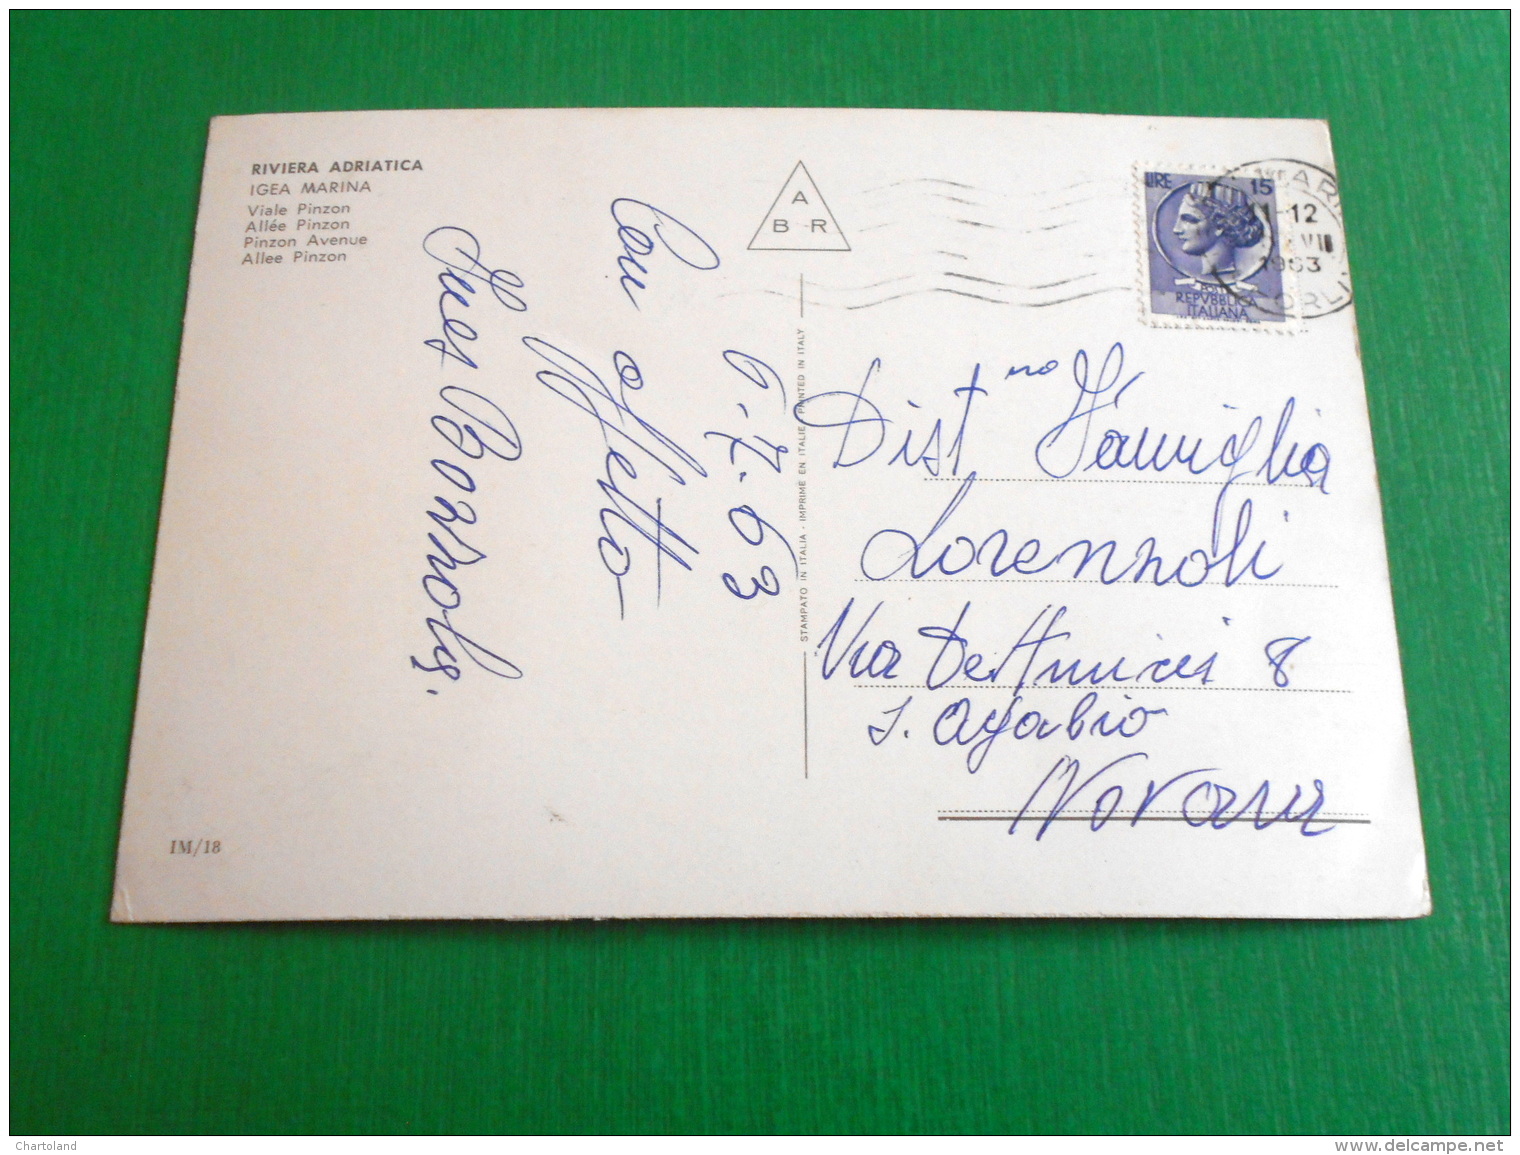 RIVIERA ADRIATICA
IGEA MARINA
Viale Pinzon
Allée Pinzon
Pinzon Avenue
Allee Pinzon
A
B R
LIRE 15
POSTE
REPVBBLICA
ITALIANA
11-12
VII
1963
FORLI
6.7.63
Con affetto
Ines
STAMPATO IN ITALIA - IMPRIME EN ITALIE - PRINTED IN ITALY
Dist mo Famiglia
Lorenzoli
Via De Amicis 8
S. Agabio
Novara
IM/18
Chartoland
www.delcampe.net